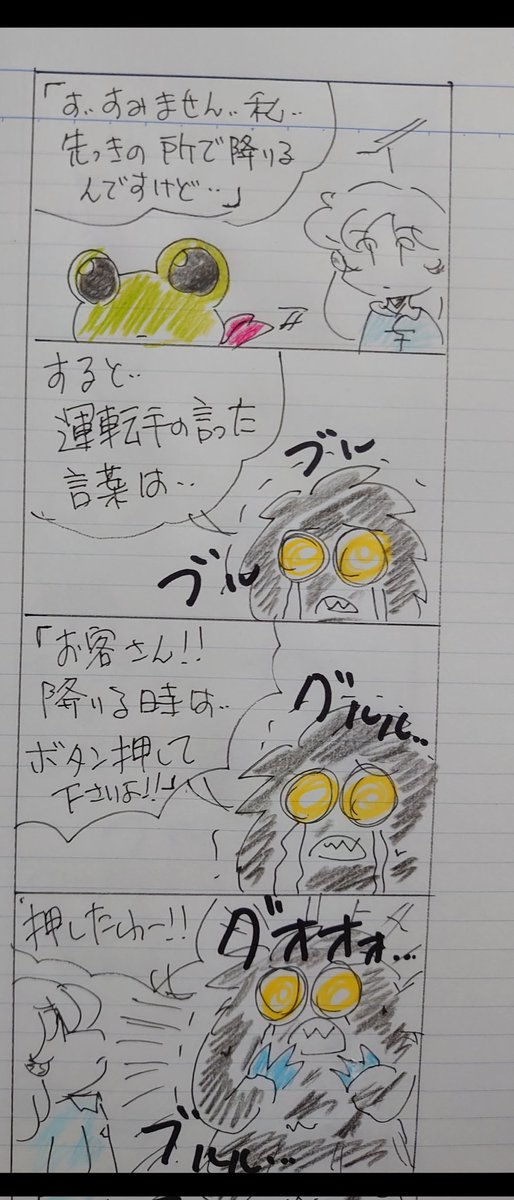 「す‥すみません‥私‥
先っきの所で降りる
んですけど‥」
すると‥
運転手の言った
言葉は‥
ブル
ブル
「お客さん!!
降りる時は‥
ボタン押して
下さいよ!!」
グルルル‥
押したわー!!
グオオオ…
ブルルル…